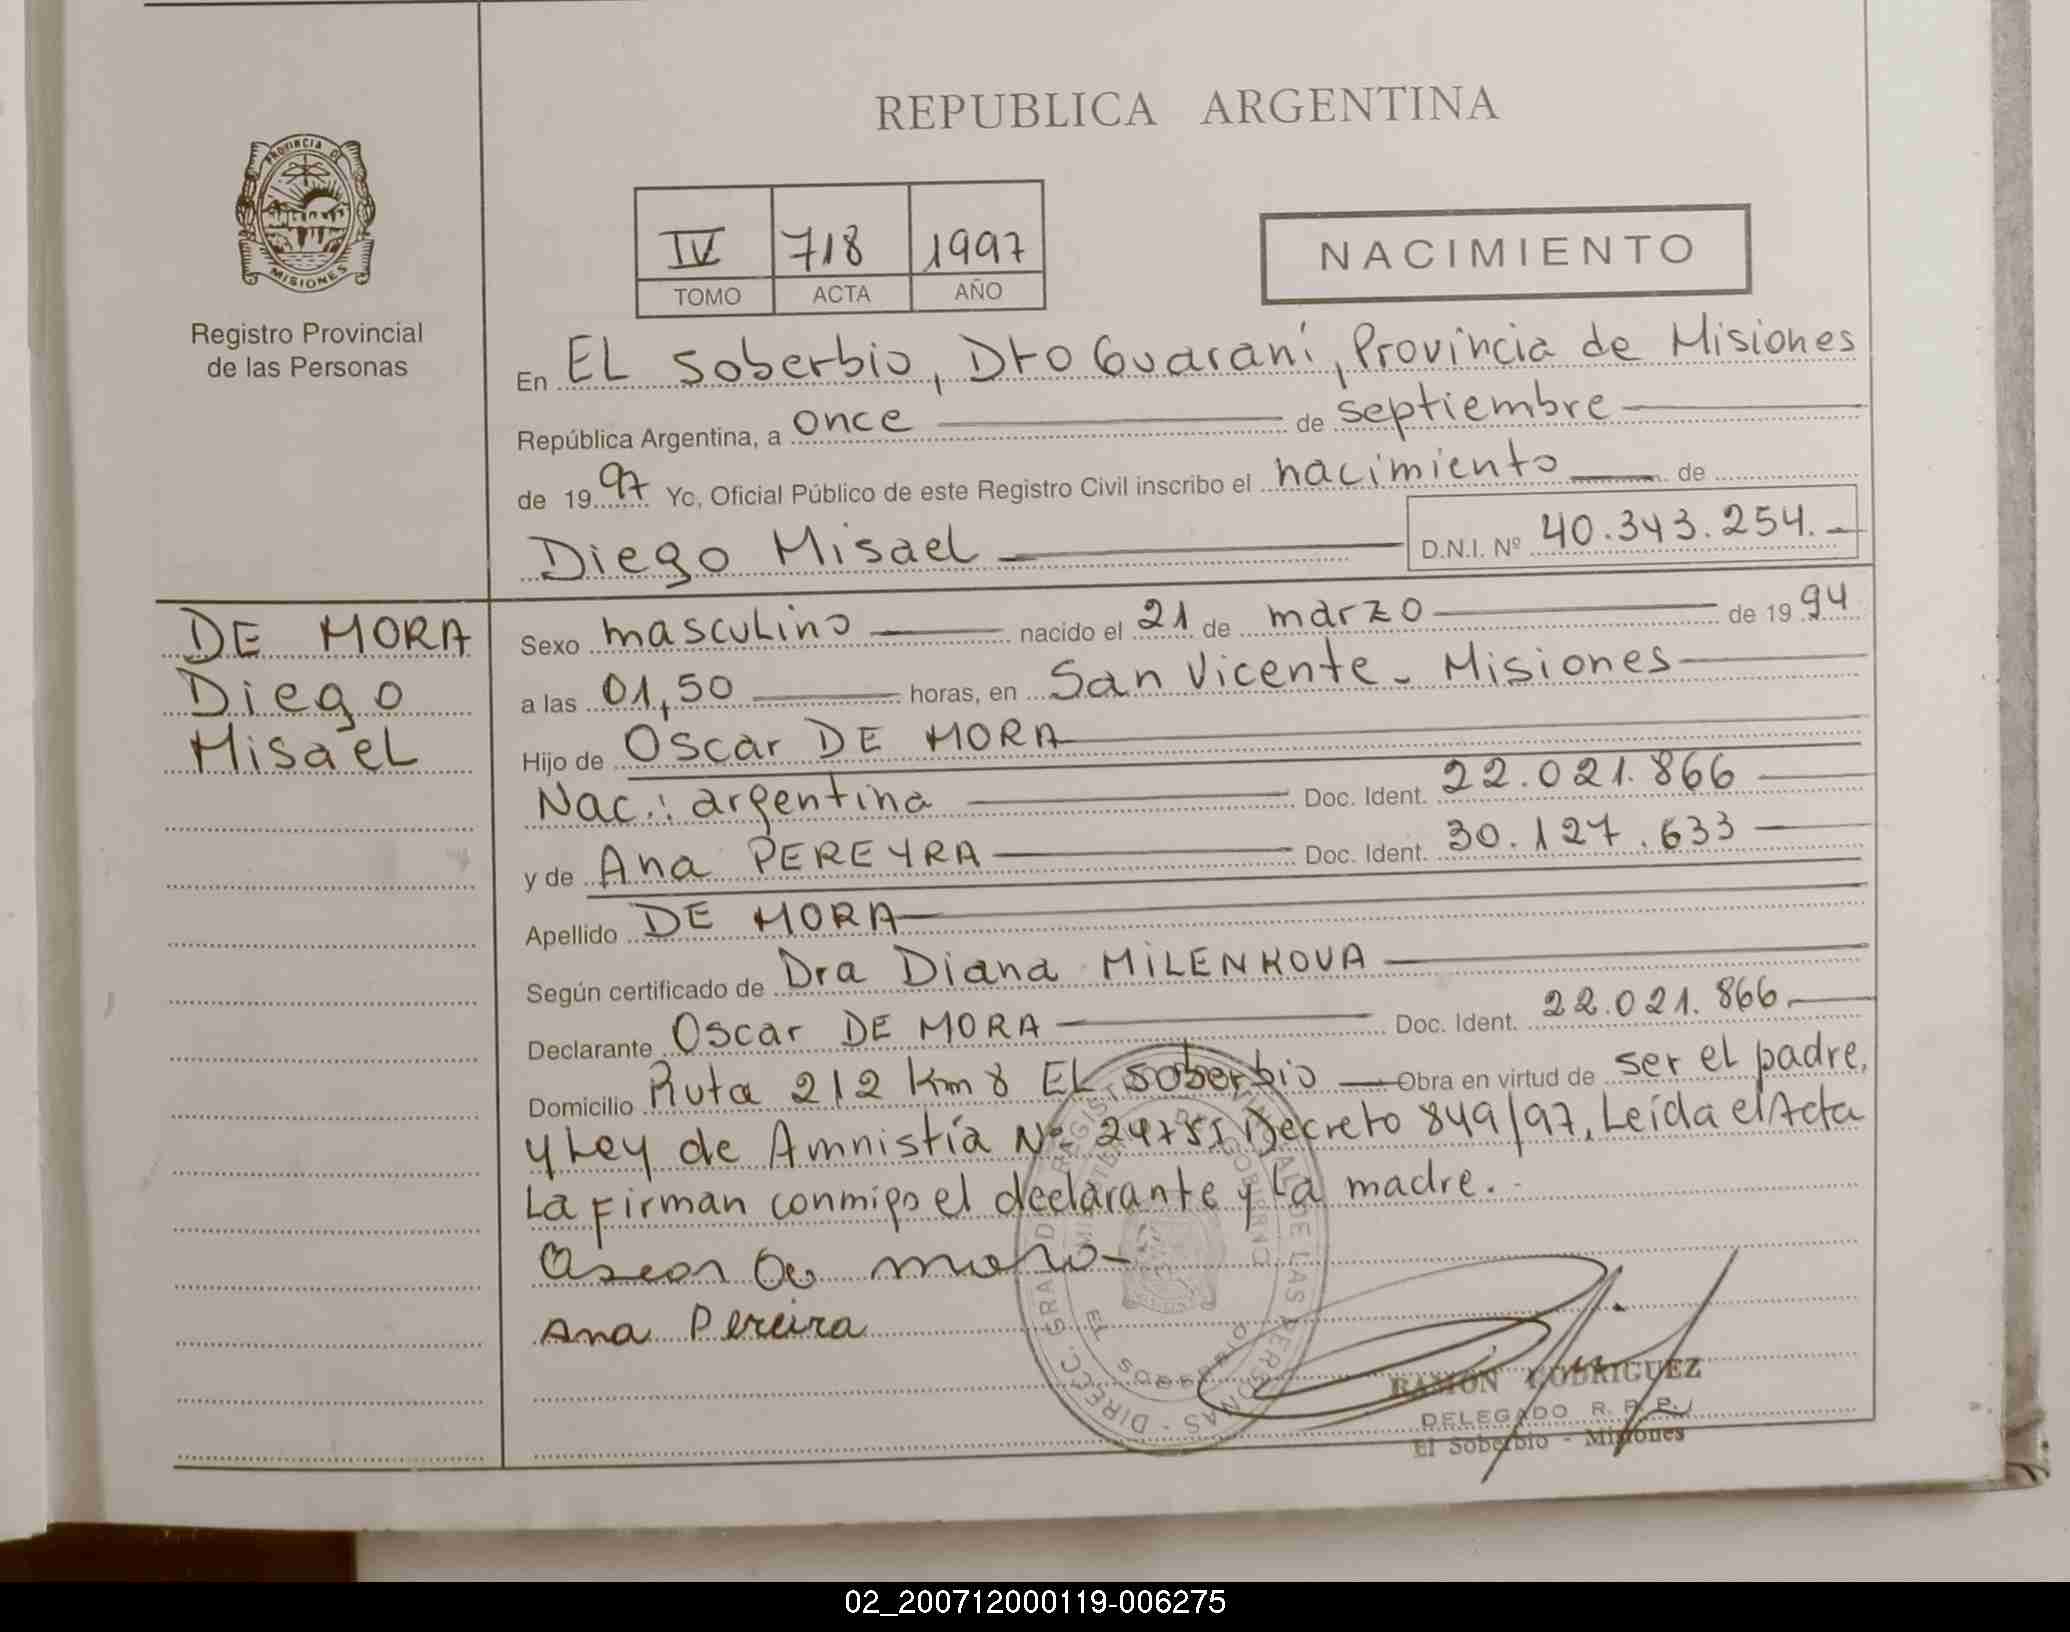 REPUBLICA ARGENTINA
PROVINCIA DE
MISIONES
Registro Provincial
de las Personas
IV 718 1997
TOMO ACTA AÑO
NACIMIENTO
En EL Soberbio, Dto Guaraní, Provincia de Misiones
República Argentina, a once de septiembre
de 1997 Yo, Oficial Público de este Registro Civil inscribo el nacimiento de
Diego Misael D.N.I. Nº 40.343.254.-
DE MORA
Diego
Misael
Sexo masculino nacido el 21 de marzo de 1994
a las 01,50 horas, en San Vicente - Misiones
Hijo de Oscar DE MORA
Nac.: argentina Doc. Ident. 22.021.866
y de Ana PEREYRA Doc. Ident. 30.127.633
Apellido DE MORA
Según certificado de Dra Diana MILENKOVA
Declarante Oscar DE MORA Doc. Ident. 22.021.866
Domicilio Ruta 212 Km 8 EL Soberbio Obra en virtud de ser el padre,
y Ley de Amnistía Nº Decreto 849/97, Leída el Acta
La firman conmigo el declarante y La madre.-
Oscar De mora
Ana Pereira
DIRECC. GRAL. DE REGISTRO PROVINCIAL DE LAS PERSONAS
MINISTERIO DE GOBIERNO
EL SOBERBIO
RAMON RODRIGUEZ
DELEGADO R. P. P.
El Soberbio - Misiones
02_200712000119-006275